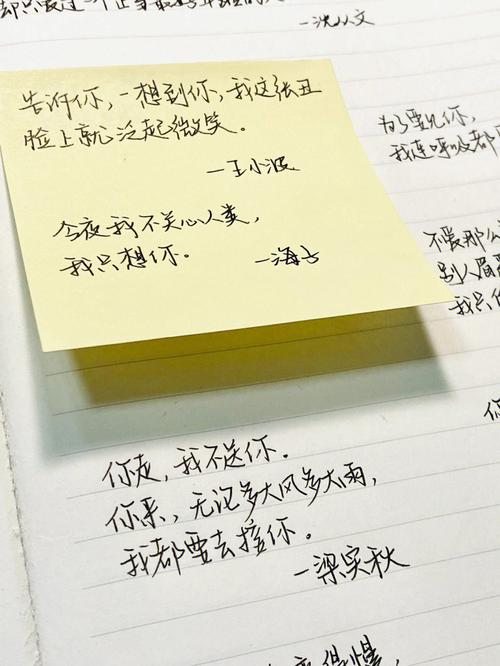 一沈从文
告诉你,一想到你,我这张丑
脸上就泛起微笑。
—王小波
今夜我不关心人类,
我只想你。
—海子
为了爱你,
我连呼吸都
不爱那么
别人眉
我只
你走,我不送你.
你来,无论多大风多大雨,
我都要去接你。
—梁实秋